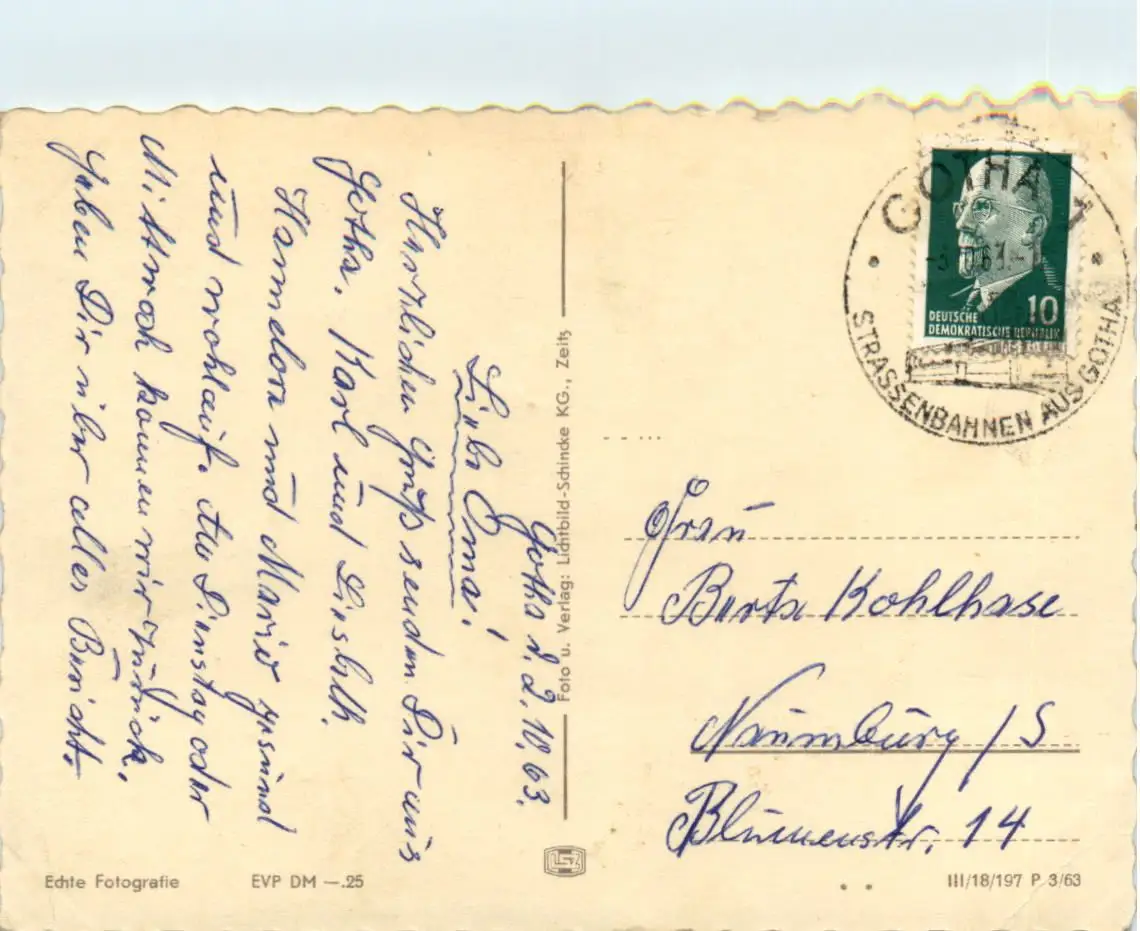 Gotha d. 2.10.63.
Liebe Oma!
Herzlichen Gruß senden Dir aus
Gotha. Karl und Liesbeth.
Hannelore und Mario gesund
und wohlauf. Am Dienstag oder
Mittwoch kommen wir zurück.
geben Dir über alles Bericht.
Foto u. Verlag: Lichtbild-Schincke KG., Zeitz
GOTHA 1
-3.10.63.-
STRASSENBAHNEN AUS GOTHA
10
DEUTSCHE
DEMOKRATISCHE REPUBLIK
Frau
Berta Kohlhase
Naumburg/S
Blumenstr. 14
Echte Fotografie
EVP DM —.25
III/18/197 P 3/63